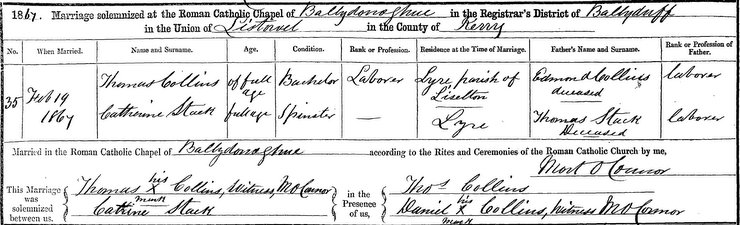 1867. Marriage solemnized at the Roman Catholic Chapel of Ballydonoghue in the Registrar's District of Ballyduff
in the Union of Listowel in the County of Kerry
No. When Married. Name and Surname. Age. Condition. Rank or Profession. Residence at the Time of Marriage. Father's Name and Surname. Rank or Profession of Father.
35 Feb 19 1867 Thomas Collins of full age Bachelor Laborer Lyre parish of Liselton Edmond Collins deceased laborer
Catherine Stack full age Spinster — Lyre Thomas Stack Deceased laborer
Married in the Roman Catholic Chapel of Ballydonoghue according to the Rites and Ceremonies of the Roman Catholic Church by me,
Mort O Connor
This Marriage was solemnized between us, Thomas his X mark Collins, Witness, M O Connor
Catrine Stack
in the Presence of us, Thos Collins
Daniel his X mark Collins, Witness M O Connor